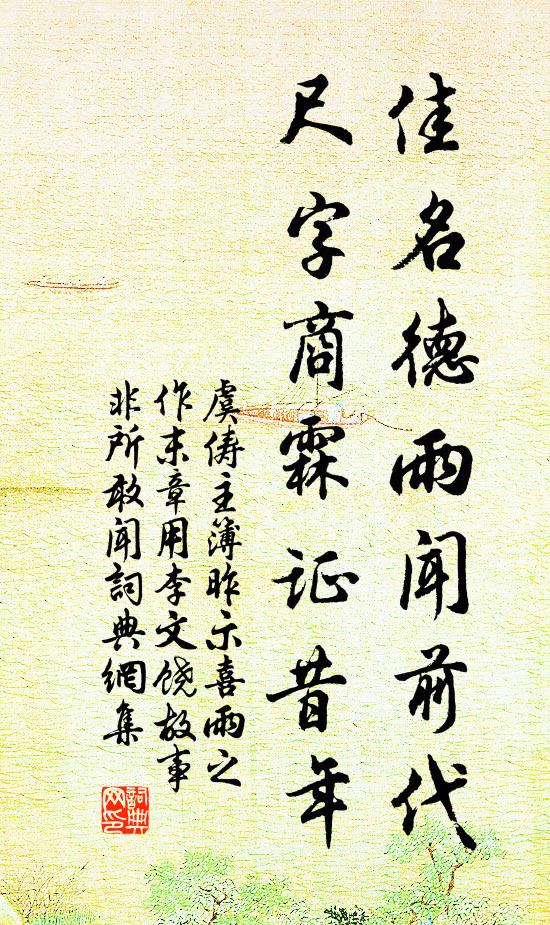 佳名德雨闻前代
尺字商霖证昔年
虞俦主簿昨示喜雨之
作末章用李文饶故事
非所敢闻詞典網集
詞典网印